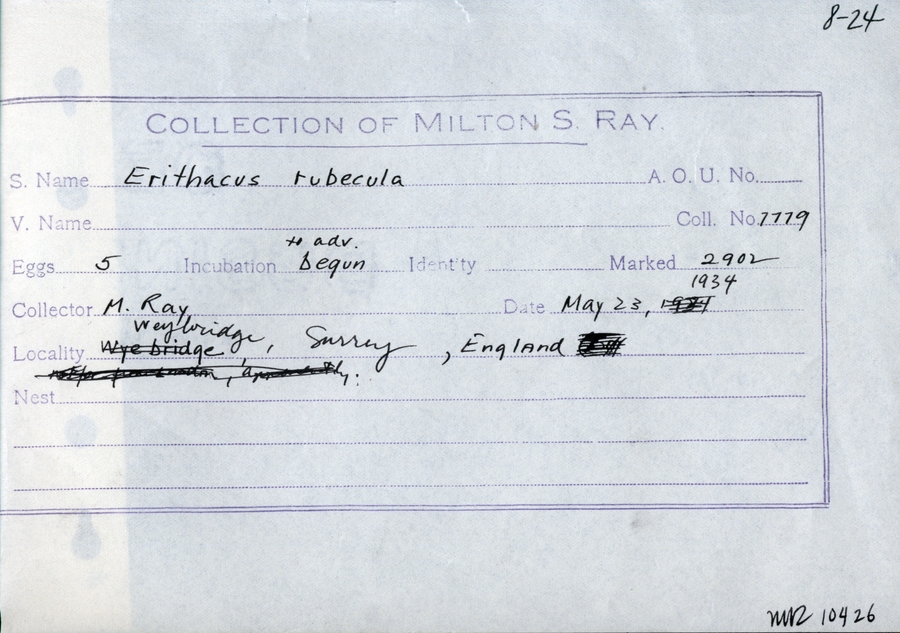 8-24
COLLECTION OF MILTON S. RAY.
S. Name Erithacus rubecula A. O. U. No.
V. Name Coll. No. 7779
to adv.
Eggs 5 Incubation begun Identity Marked 2902
1934
Collector M. Ray Date May 23,
Weybridge
Locality Wyebridge, Surrey, England
Nest
MR 10426